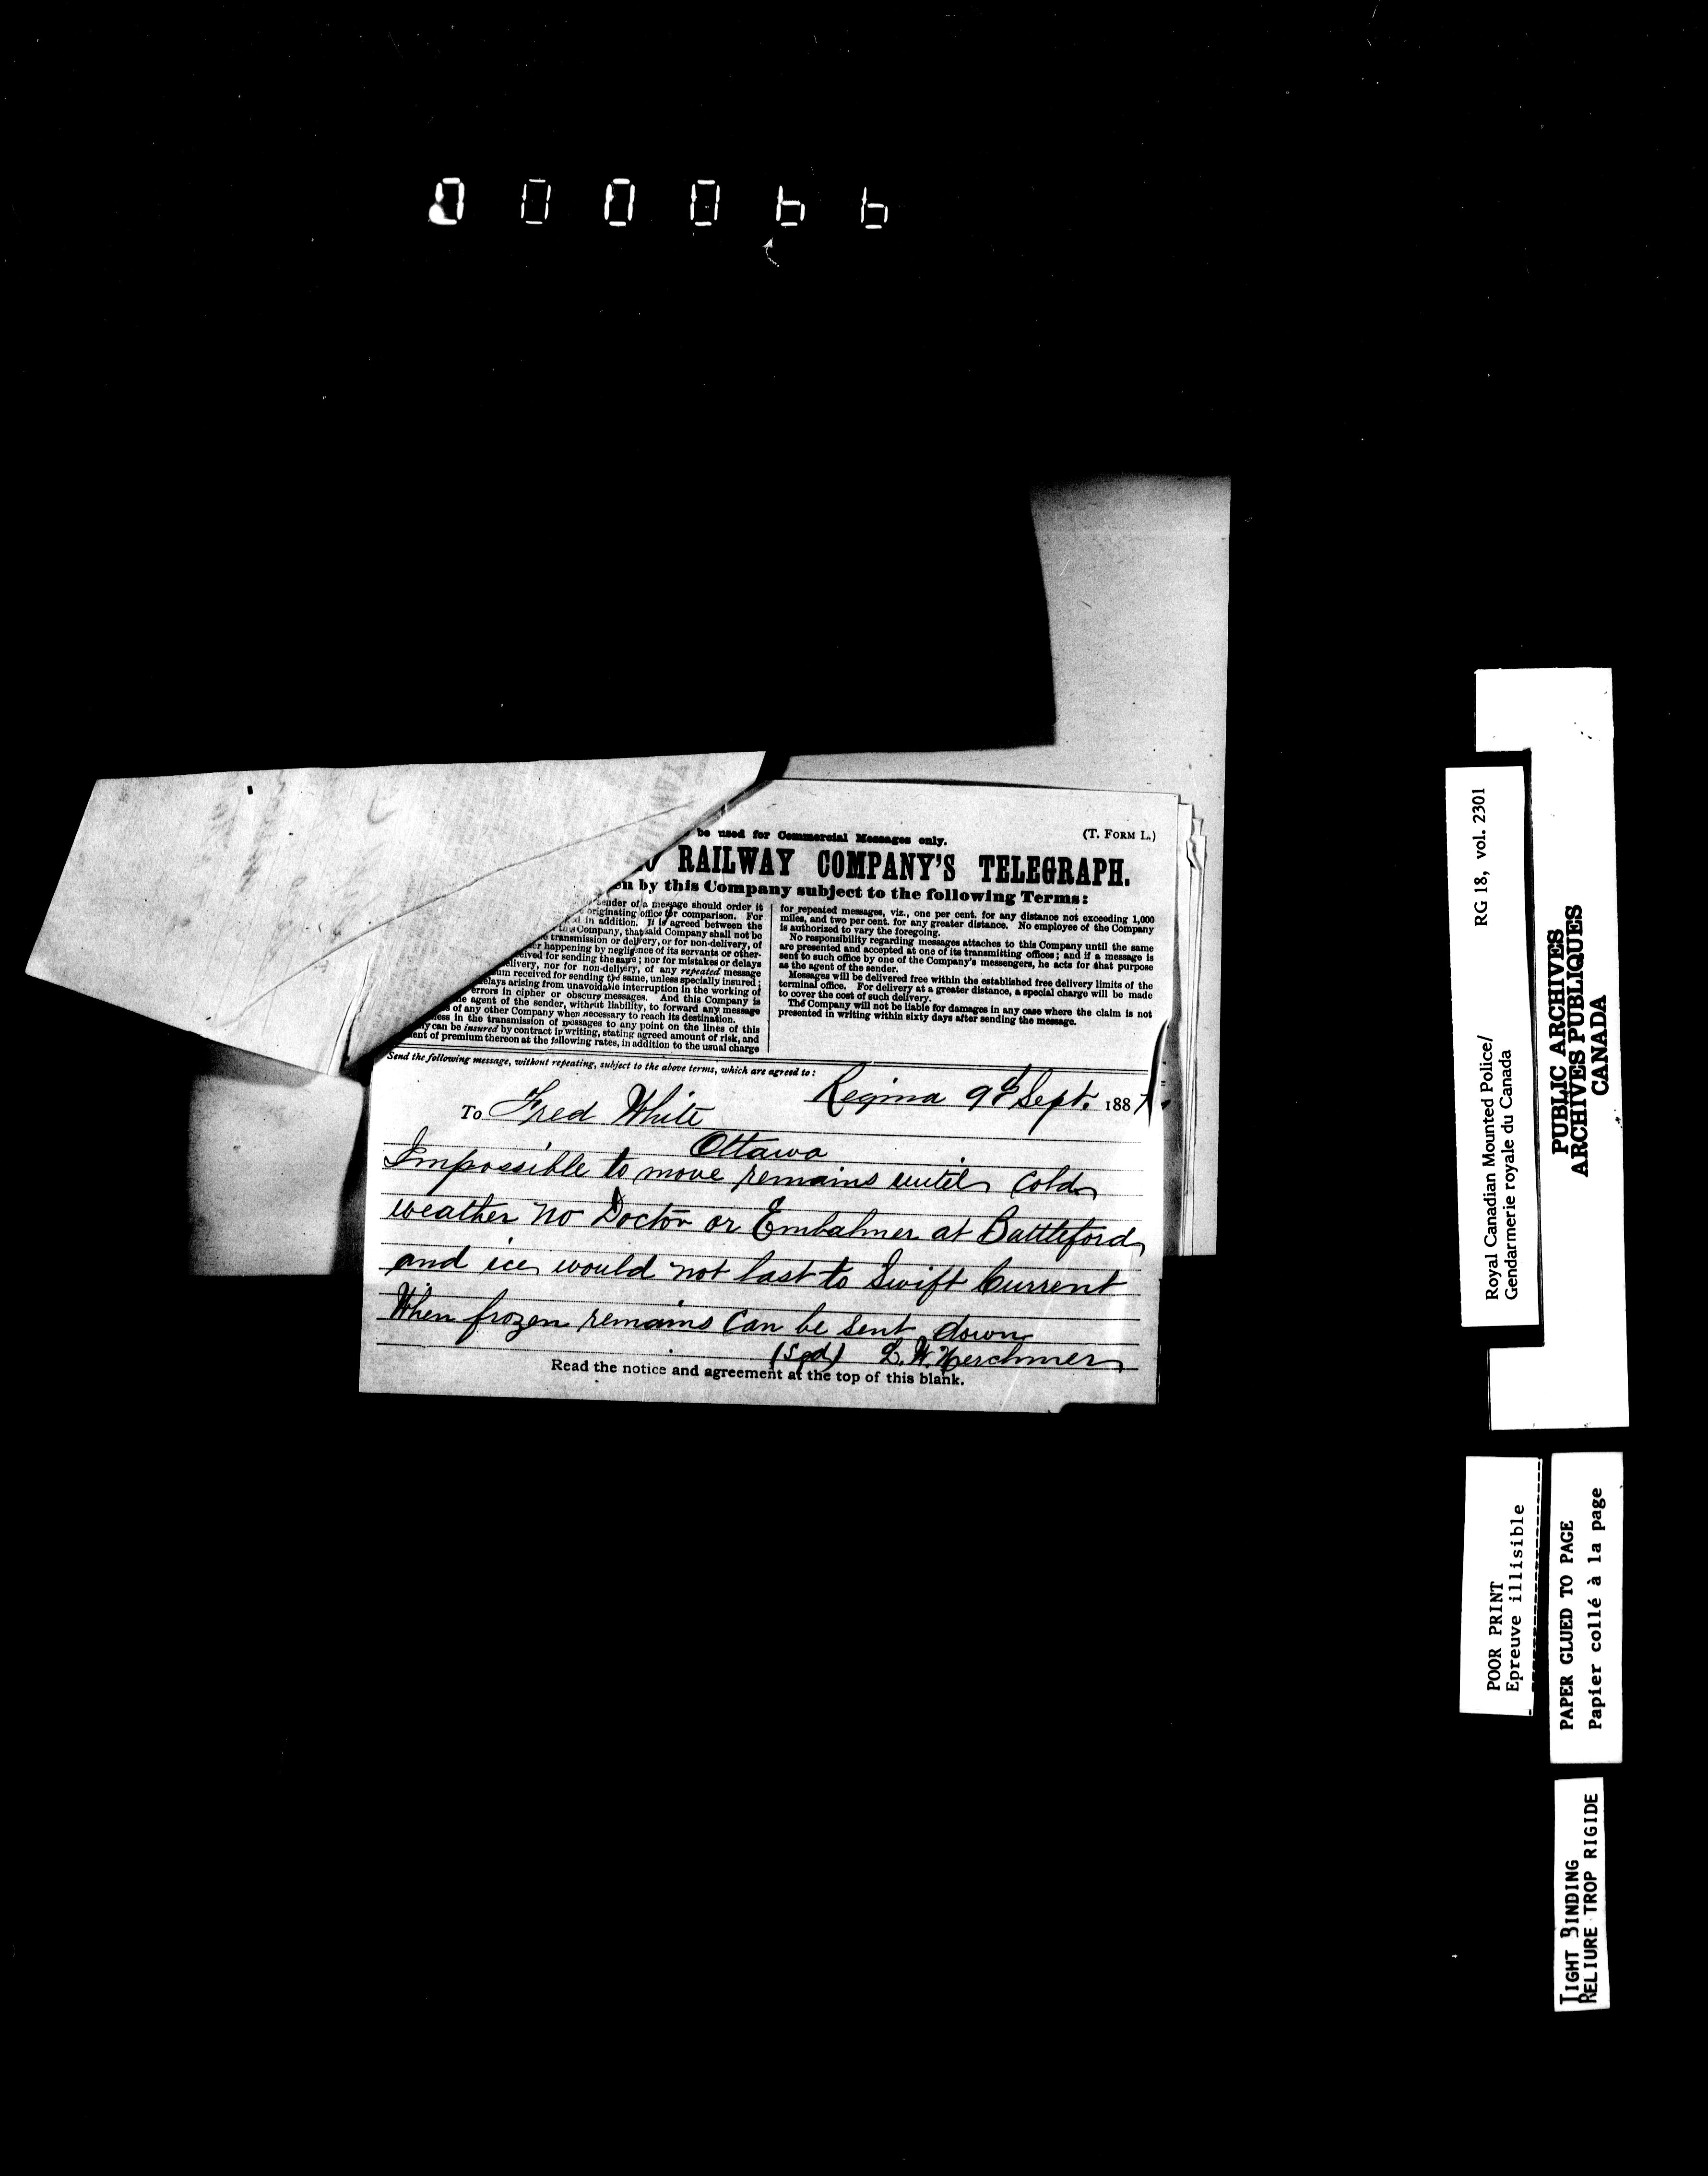 be used for Commercial Messages only.
(T. FORM L.)
RAILWAY COMPANY'S TELEGRAPH.
by this Company subject to the following Terms:
sender of a message should order it
originating office for comparison. For
in addition. It is agreed between the
Company, that said Company shall not be
transmission or delivery, or for non-delivery, of
happening by negligence of its servants or other-
for sending the same; nor for mistakes or delays
delivery, nor for non-delivery, of any repeated message
received for sending the same, unless specially insured;
delays arising from unavoidable interruption in the working of
errors in cipher or obscure messages. And this Company is
agent of the sender, without liability, to forward any message
of any other Company when necessary to reach its destination.
in the transmission of messages to any point on the lines of this
can be insured by contract in writing, stating agreed amount of risk, and
of premium thereon at the following rates, in addition to the usual charge
for repeated messages, viz., one per cent. for any distance not exceeding 1,000
miles, and two per cent. for any greater distance. No employee of the Company
is authorized to vary the foregoing.
No responsibility regarding messages attaches to this Company until the same
are presented and accepted at one of its transmitting offices; and if a message is
sent to such office by one of the Company's messengers, he acts for that purpose
as the agent of the sender.
Messages will be delivered free within the established free delivery limits of the
terminal office. For delivery at a greater distance, a special charge will be made
to cover the cost of such delivery.
The Company will not be liable for damages in any case where the claim is not
presented in writing within sixty days after sending the message.
Send the following message, without repeating, subject to the above terms, which are agreed to:
Regina 9th Sept. 1887
To Fred White
Ottawa
Impossible to move remains until cold
weather no Doctor or Embalmer at Battleford
and ice would not last to Swift Current
When frozen remains can be sent down
(Sgd) L. W. Herchmer
Read the notice and agreement at the top of this blank.
Royal Canadian Mounted Police/ RG 18, vol. 2301
Gendarmerie royale du Canada
PUBLIC ARCHIVES
ARCHIVES PUBLIQUES
CANADA
POOR PRINT
Epreuve illisible
PAPER GLUED TO PAGE
Papier collé à la page
TIGHT BINDING
RELIURE TROP RIGIDE